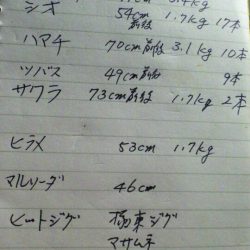 シオ 54cm前後 1.7kg 17本
ハマチ 70cm前後 3.1kg 10本
ツバス 49cm前後 9本
サワラ 73cm前後 1.7kg 2本
ヒラメ 53cm 1.7kg
マルソーダ 46cm
ヒットジグ 極東ジグ
マサムネ